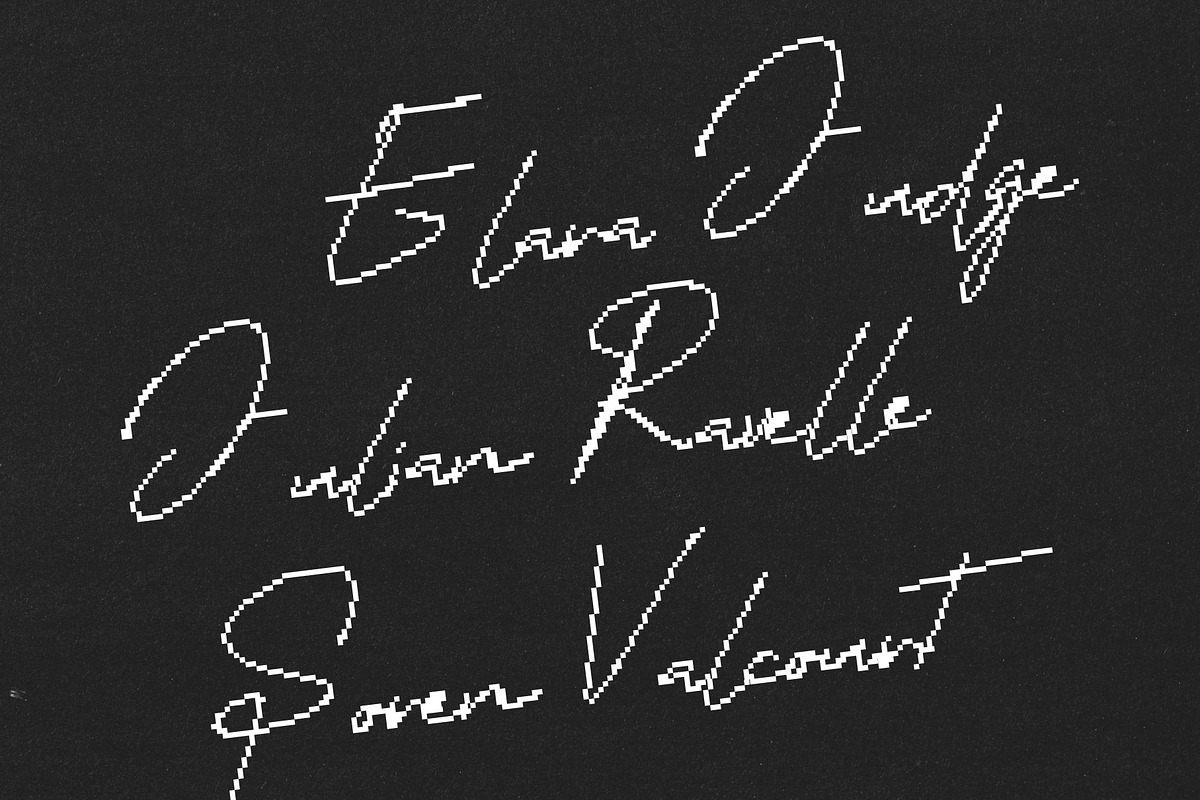 Elara Judge
Julian Ravelle
Soren Valcourt